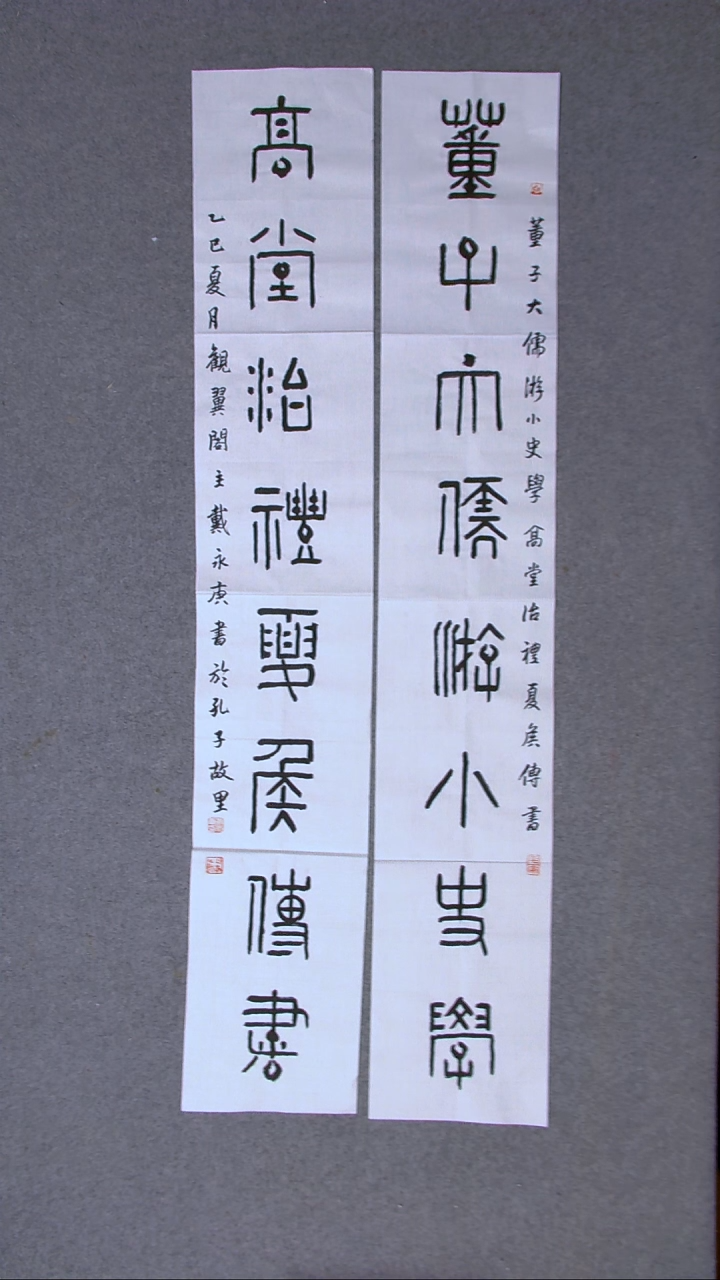 董子大儒游小史學高堂治禮夏侯傳書
董子大儒游小史學
高堂治禮夏侯傳書
乙巳夏月觀翼閣主戴永庚書於孔子故里